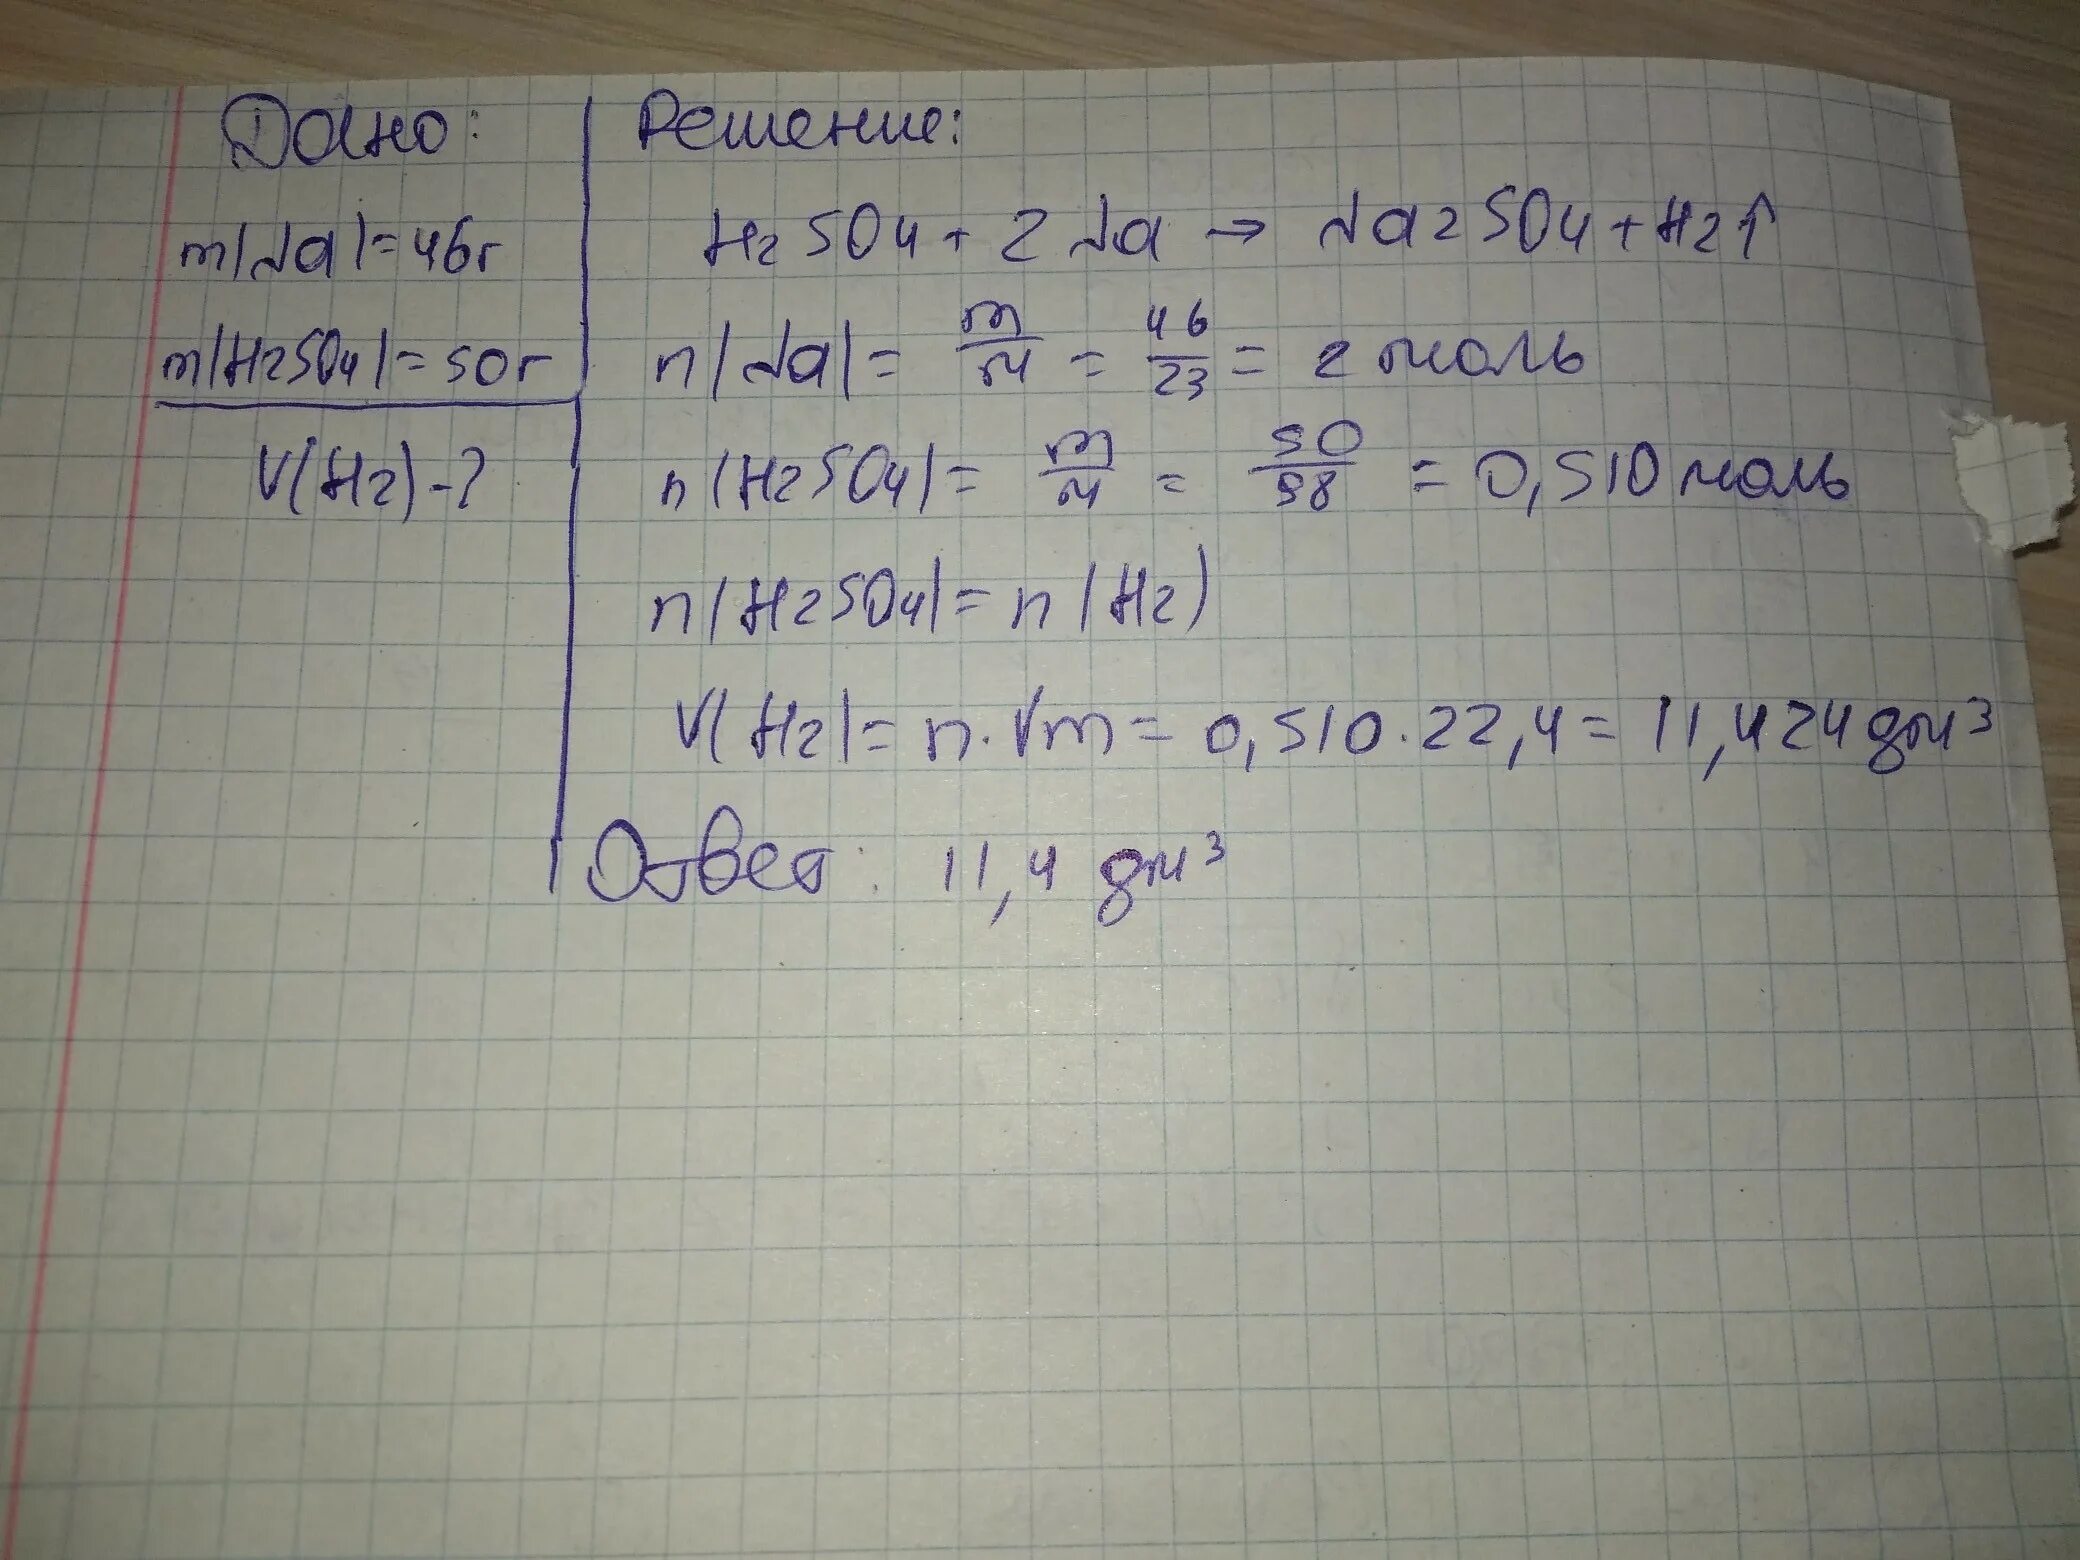 Дано:
m(Na)=46г
m(H2SO4)=50г
V(H2)-?
Решение:
H2SO4+2Na→Na2SO4+H2↑
n(Na)=m/M=46/23=2моль
n(H2SO4)=m/M=50/98=0,510моль
n(H2SO4)=n(H2)
V(H2)=n·Vm=0,510·22,4=11,424дм³
Ответ: 11,4 дм³